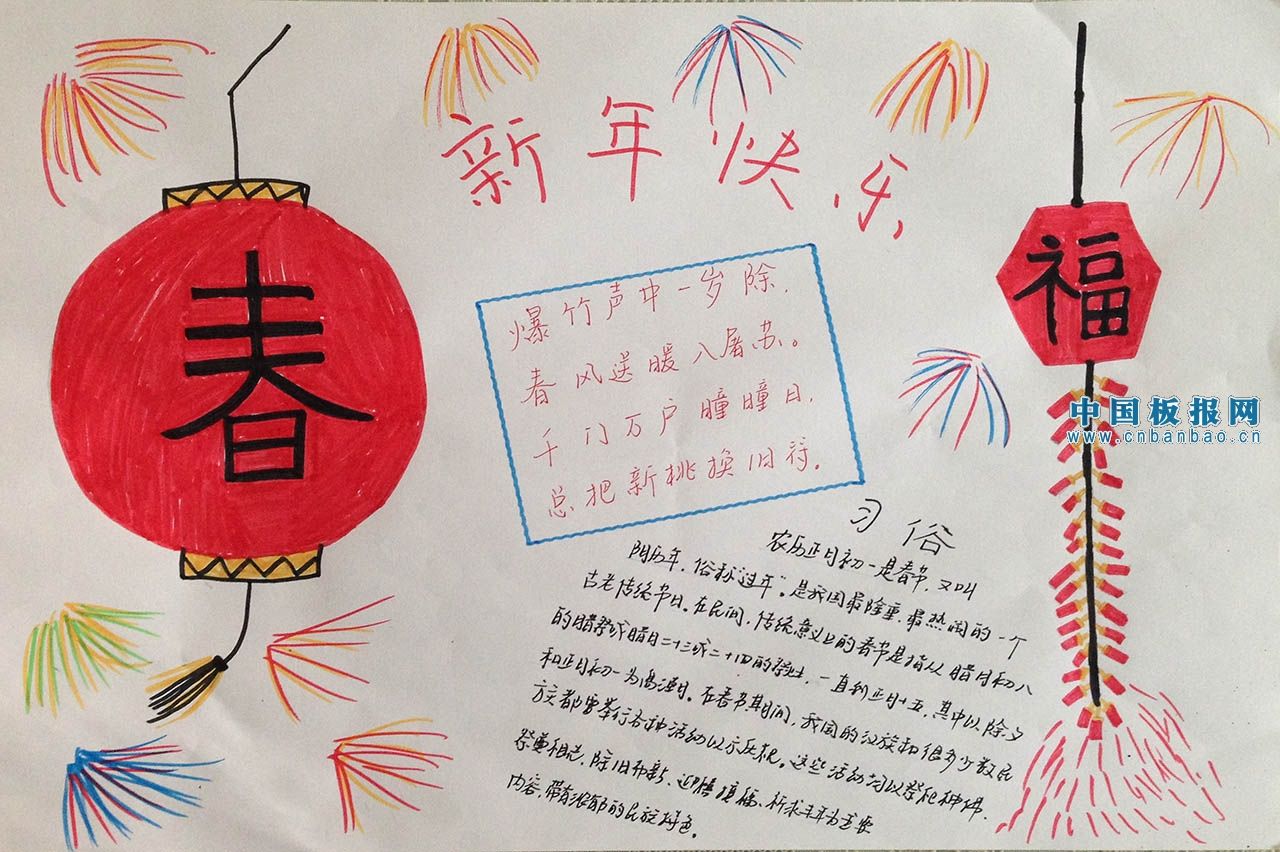 新年快乐
春
福
爆竹声中一岁除，
春风送暖入屠苏。
千门万户瞳瞳日，
总把新桃换旧符。
中国板报网
www.cnbanbao.cn
习俗
农历正月初一是春节，又叫
阴历年，俗称“过年”。是我国最隆重、最热闹的一个
古老传统节日。在民间，传统意义上的春节是指从腊月初八
的腊祭或腊月二十三或二十四的祭灶，一直到正月十五，其中以除夕
和正月初一为高潮。在春节期间，我国的汉族和很多少数民
族都要举行各种活动以示庆祝。这些活动均以祭祀神佛、
祭奠祖先、除旧布新、迎禧接福、祈求丰年为主要
内容，带有浓郁的民族特色。